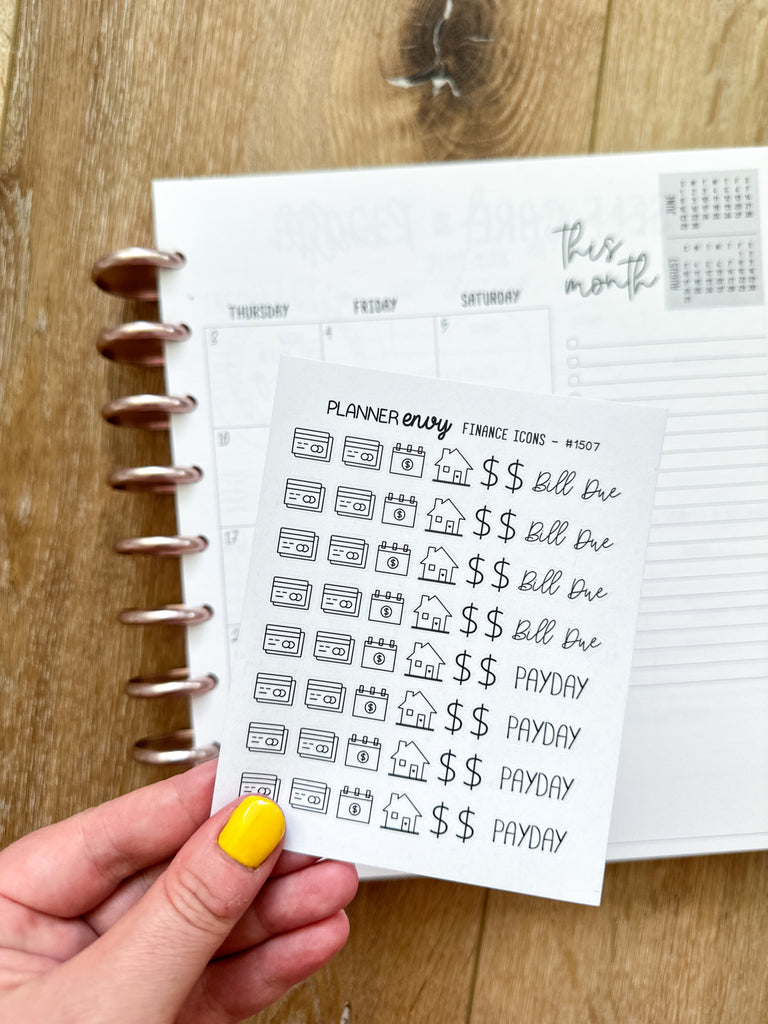 JUNE
this
month
AUGUST
THURSDAY FRIDAY SATURDAY
3 4 5
PLANNER envy FINANCE ICONS - #1507
$ $ Bill Due
10
$ $ Bill Due
$ $ Bill Due
17
$ $ Bill Due
$ $ PAYDAY
$ $ PAYDAY
$ $ PAYDAY
$ $ PAYDAY